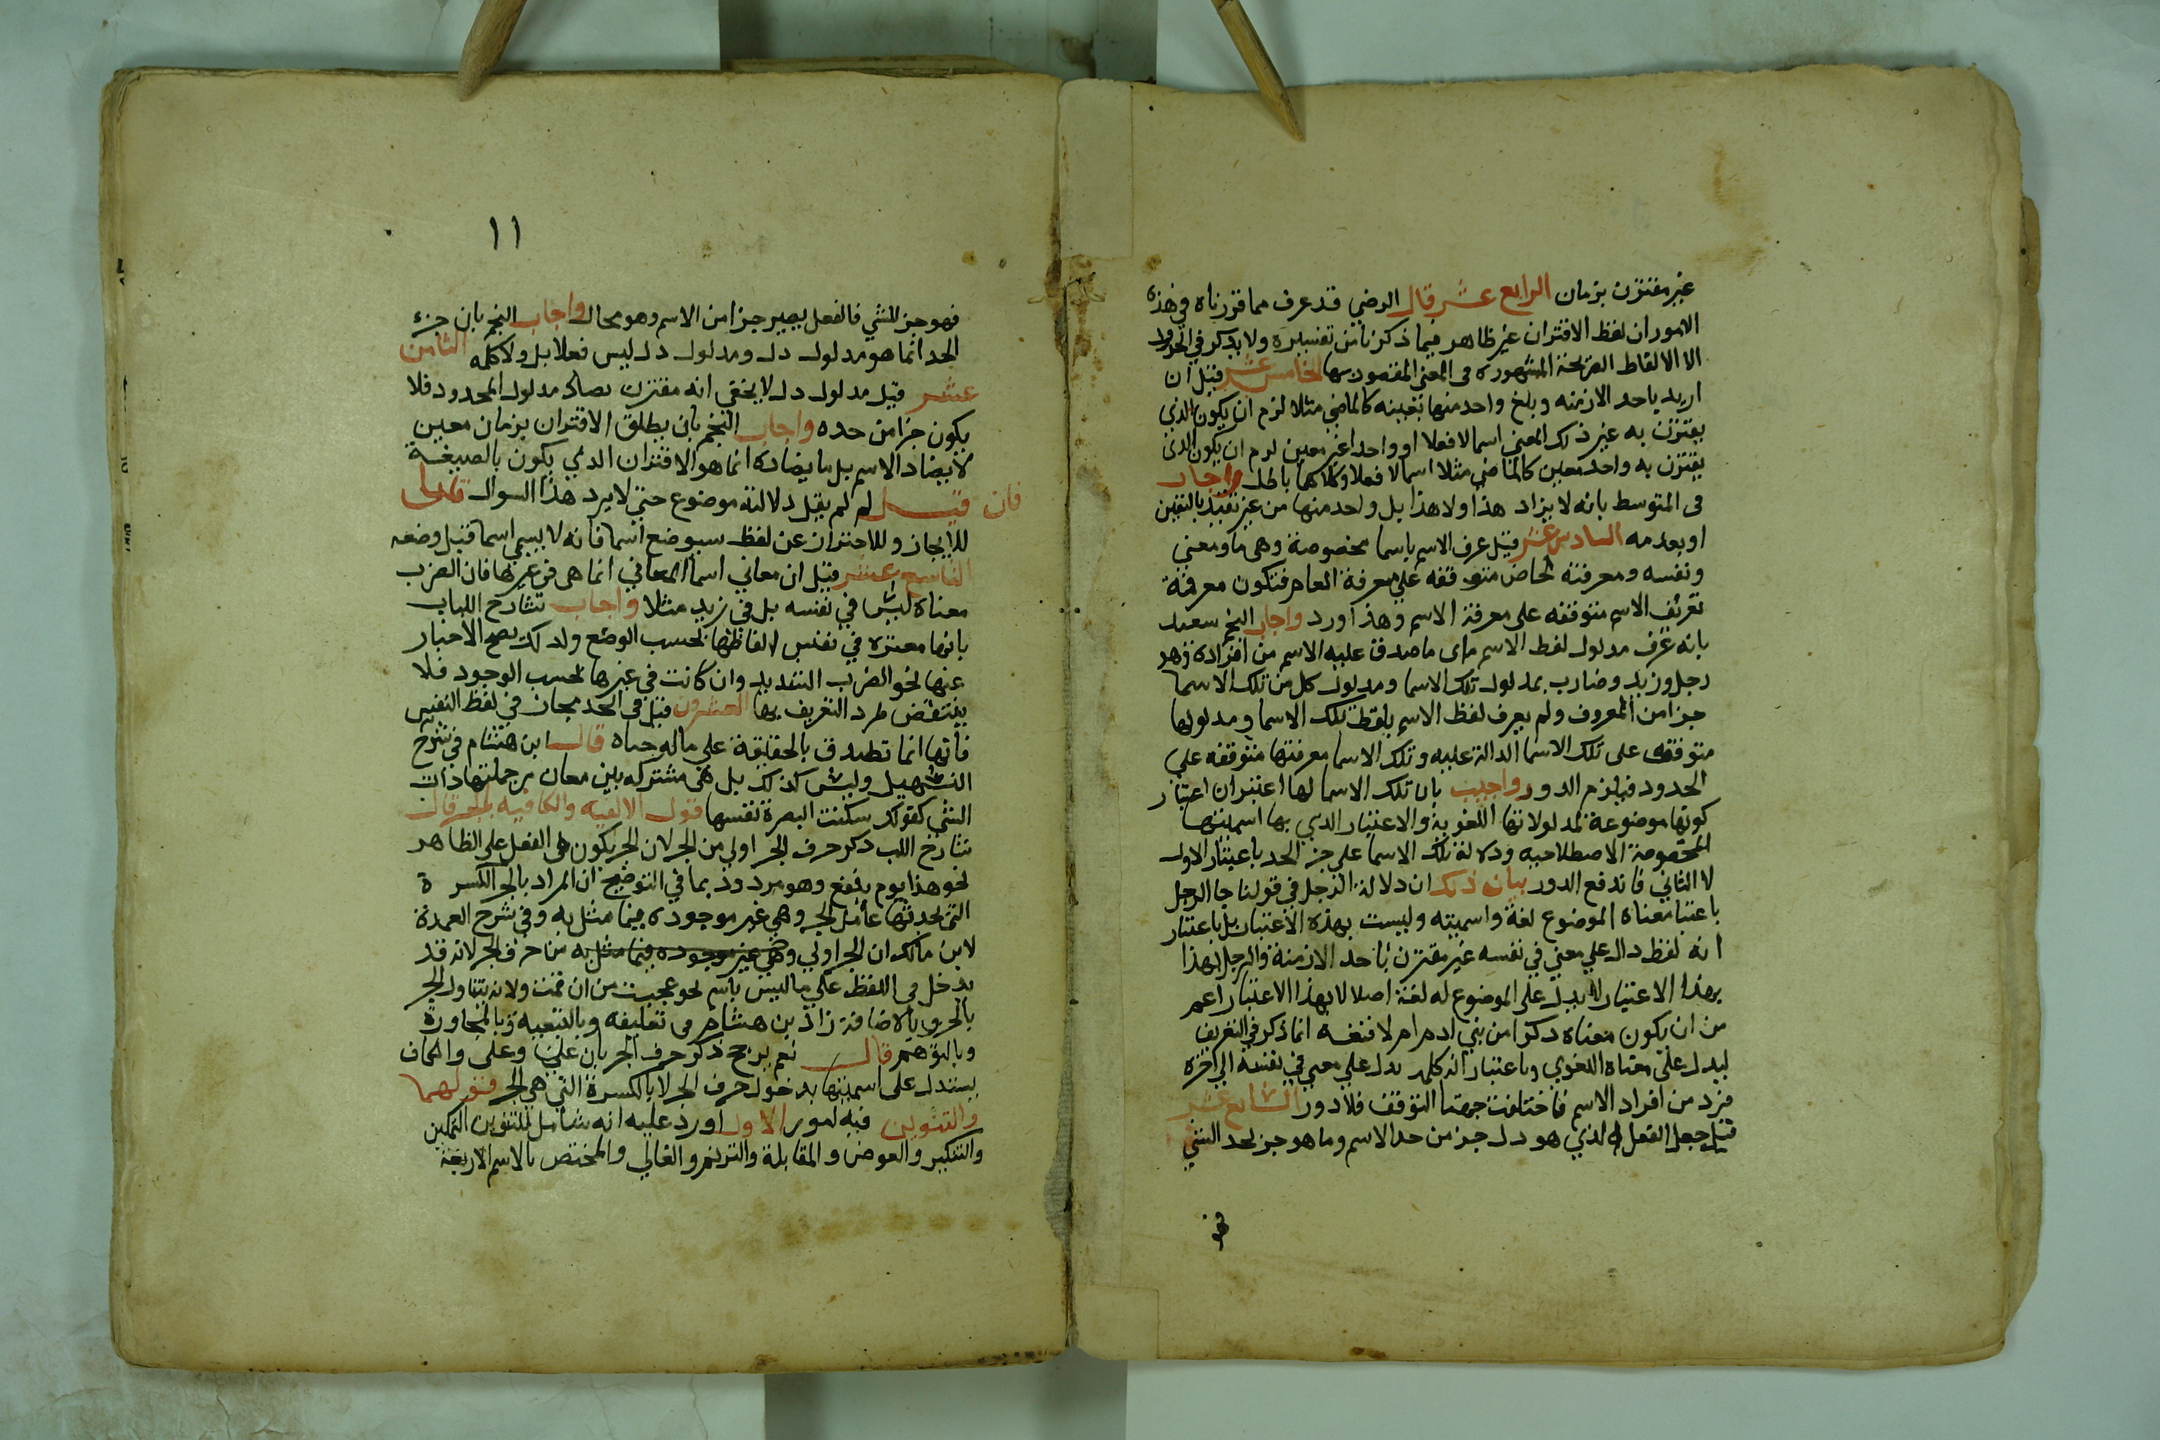 غير مقترن بزمان الرابع عشر قال الرضي قد عرف مما قررناه في هذه
الامور ان لفظ الاقتران غير ظاهر فيما ذكرنا من تفسيره ولا يذكر في الحدود
الا الالفاظ الصريحة المشهورة في المعني المقصود بها الخامس عشر قيل ان
اريد باحد الازمنه وبلخ واحد منها بعينه كالماضي مثلا لزم ان يكون الذي
يقترن به غير ذلك المعني اسما لا فعلا او واحد غير معين لزم ان يكون الذي
يقترن به واحد معين كالماضي مثلا اسما لا فعلا وكلاهما باطل واجاب
في المتوسط بانه لا يراد هذا ولا هذا بل واحد منها من غير تقييد بالتعين
او بعدمه السادس عشر قيل عرف الاسم باسما مخصوصة وهي ما ومعني
ونفسه ومعرفته الخاص متوقفه علي معرفة العام فتكون معرفة
تعريف الاسم متوقفه على معرفة الاسم وهذا دور واجاب النجم سعيد
بانه عرف مدلول لفظ الاسم ماي ما صدق عليه الاسم من افراده وهو
رجل وزيد وضارب بمدلول تلك الاسما ومدلول كل من تلك الاسما
جزا من المعروف ولم يعرف لفظ الاسم بلفظ تلك الاسما ومدلولها
متوقفه على تلك الاسما الدالة عليه وتلك الاسما معرفتها متوقفه علي
الحدود فيلزم الدور واجيب بان تلك الاسما لها اعتبران اعتبار
كونها موضوعة لمدلولاتها اللغوية والاعتبار الذي بها اسميتها
المخصوصة الاصطلاحيه ودلالة تلك الاسما علي جز الحد باعتبار الاول
لا الثاني فاندفع الدور بيان ذلك ان دلالة الرجل في قولنا جا الرجل
باعتبا معناه الموضوع لغة واسميته وليست بهذه الاعتبار بل باعتبار
انه لفظ دال علي معني في نفسه غير مقترن باحد الازمنة والرجل بهذا
بهذا الاعتبار لا يدل على الموضوع له لغة اصلا لا بهذا الاعتبار اعم
من ان يكون معناه ذكرا من بني ادم ام لا فنفسه انما ذكر في التعريف
ليدل علي معناه اللغوي وباعتبار انه كلمه تدل علي معني في نفسه الي اخره
فرد من افراد الاسم فاختلفت جهتا التوقف فلا دور السابع عشر
قيل جعل الفعل الذي هو دل جز من حد الاسم وما هو جز لحد الشي
فهو
١١
فهو جز للشي فالفعل يصير جزا من الاسم وهو محال واجاب النجم بان جزء
الحد انما هو مدلول دل ومدلول دل ليس فعلا بل ولا كلمه الثامن
عشر قيل مدلول دل لا يخفي انه مقترن يضاد مدلول المحدود فلا
يكون جزا من حده واجاب النجم بان يطلق الاقتران بزمان معين
لا يضاد الاسم بل ما يضاده انما هو الاقتران الذي يكون بالصيغة
فان قيل لم لم يقل دلالته موضوع حتي لا يرد هذا السوال قلنا
للايجاز وللاحتراز عن لفظ سيوضع اسما فانه لا يسمي اسما قبل وضعه
التاسع عشر قيل ان معاني اسما المعاني انما هي في غيرها فان الضرب
معناه ليس في نفسه بل في زيد مثلا واجاب شارح اللباب
بانها معتبره في نفس الفاظها بحسب الوضع ولذلك يصح الاخبار
عنها نحو الضرب الشديد وان كانت في غيرها بحسب الوجود فلا
ينتقض طرد التعريف بها العشرون قيل في الحد مجاز في لفظ النفس
فانها انما تصدق بالحقيقة علي ماله حياه قال ابن هشام في شرح
التسهيل وليس كذلك بل هي مشتركه بين معان من جملتها ذات
الشي كقولك سكنت البصرة نفسها قول الالفيه والكافيه بالجر قال
شارح اللب ذكر حرف الجر اولي من الجر لان الجر يكون في الفعل علي الظاهر
نحو هذا يوم ينفع وهو مردود بما في التوضيح ان المراد بالجر الكسر ة
التي يحدثها عامل الجر وهي غير موجوده فيما مثل به وفي شرح العمدة
لابن مالك ان الجر اولي وهي غير موجوده فيما مثل به من حرف الجر لانه قد
يدخل في اللفظ علي ما ليس باسم نحو عجبت من ان قمت ولانه يتناول الجر
بالحرف بالاضافة زاد بن هشام في تعليقه وبالتبعيه وبالمجاورة
وبالتوهم قال نعم يرجح ذكر حرف الجر بان علي وعن والكاف
يستدل على اسميتها بدخول حرف الجر لا بالكسرة التي هي الجر قولهما
والتنوين فيه امور الاول اورد عليه انه شامل لتنوين التمكين
والتنكير والعوض والمقابلة والترنم والغالي والمختص بالاسم الاربعة